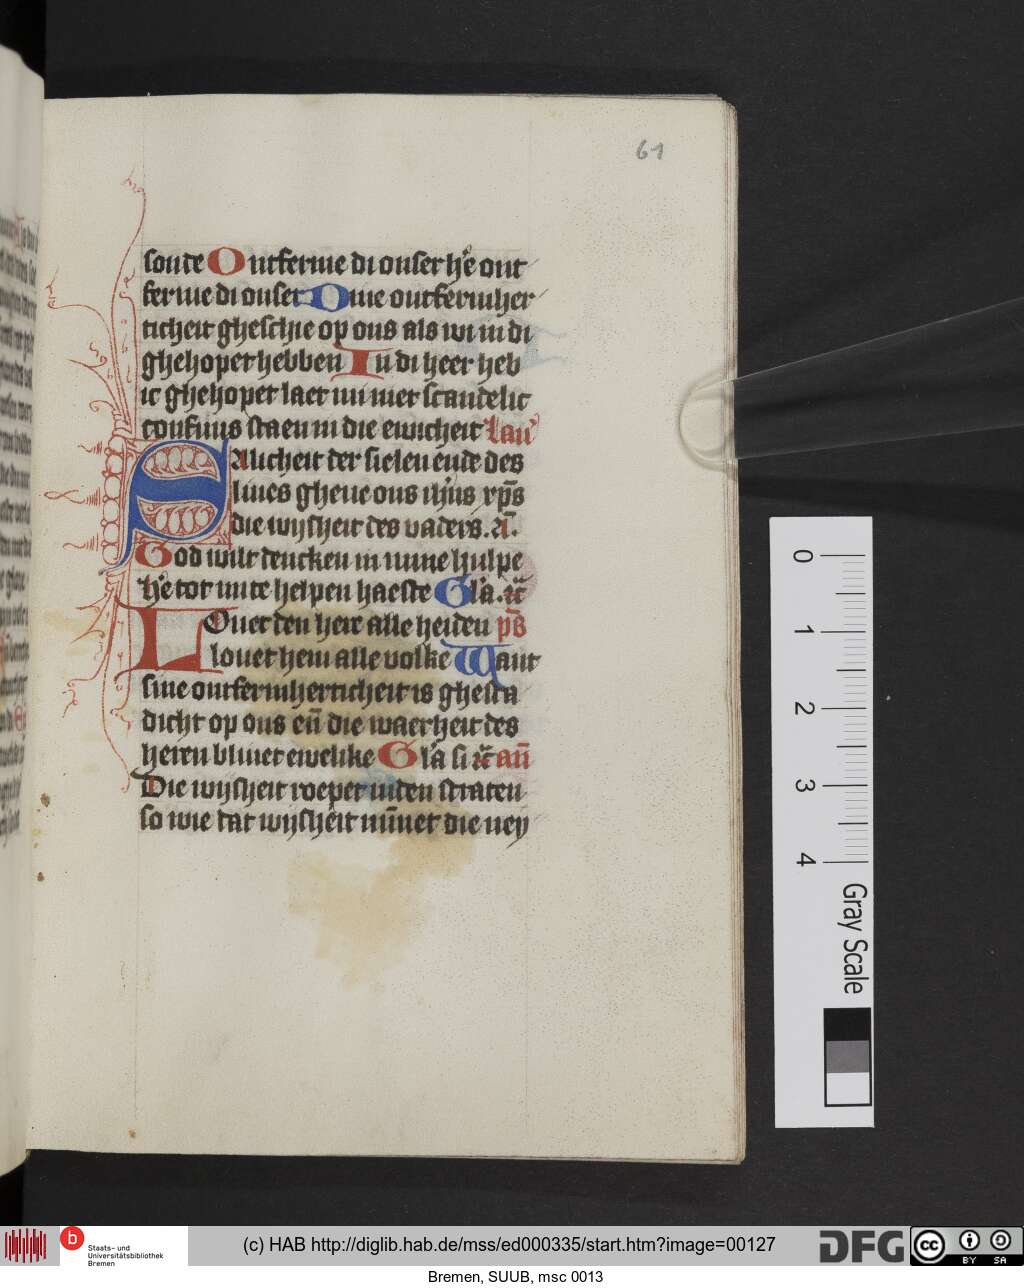 61
sonde Ontferme di onser h̄e ont
ferme di onser Dine ontfermher
ticheit gheschie op ons als wi in di
ghehopet hebben In di heer heb
ic ghehopet laet mi niet scandelic
confuus staen in die ewicheit Lau'
Salicheit der sielen ende des
liues gheue ons ihūs xp̄s
die wijsheit des vaders. A⁊.
God wilt dencken in mine hulpe
h̄e tot mi te helpen haeste Glā. ⁊c̄
Louet den here alle heiden p̄s
louet hem alle volke Want
sine ontfermherticheit is ghesta
dicht op ons en̄ die waerheit des
heren bliuet ewelike Glā si ⁊c̄ an̄
Die wijsheit roepet inden straten
so wie dat wijsheit min̄et die ney
0
1
2
3
4
Gray Scale
b
Staats- und
Universitätsbibliothek
Bremen
(c) HAB http://diglib.hab.de/mss/ed000335/start.htm?image=00127
DFG
cc
BY SA
Bremen, SUUB, msc 0013